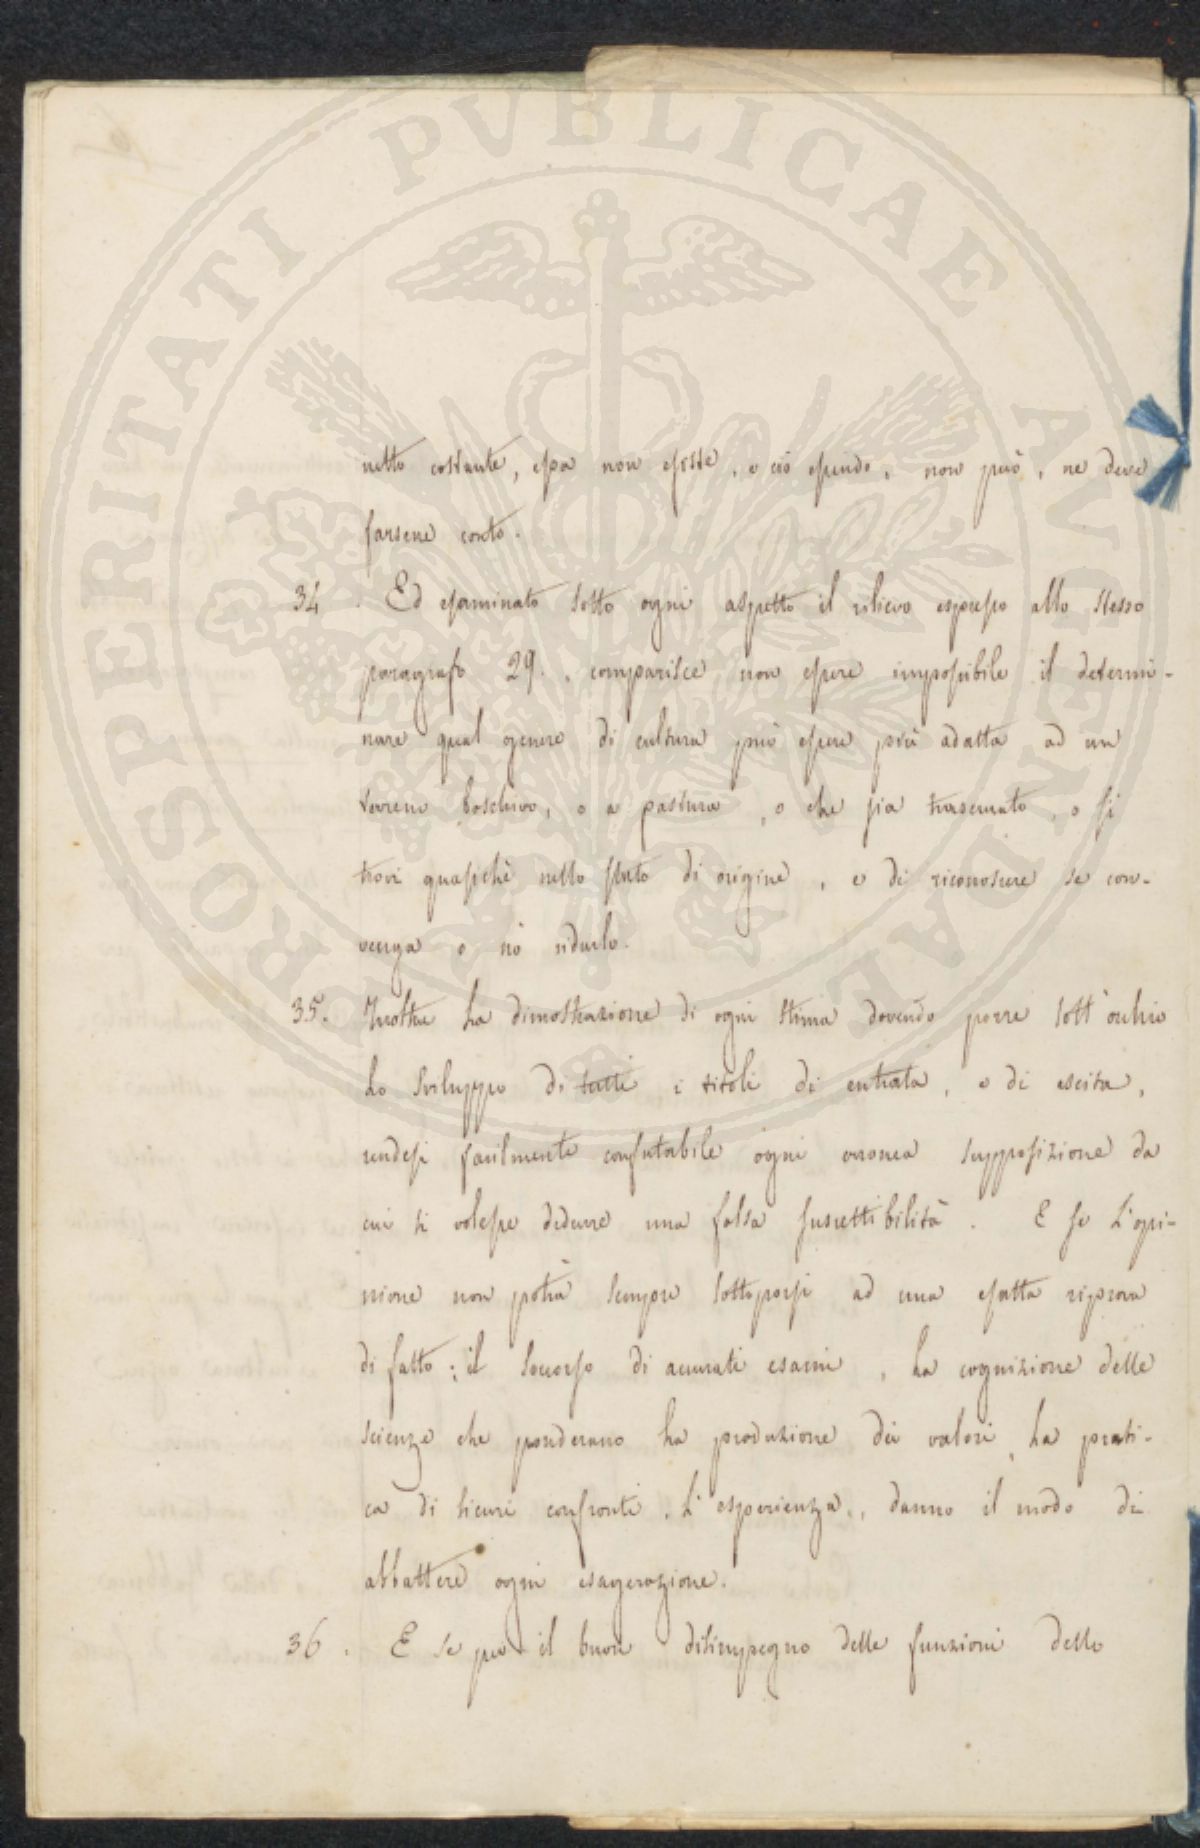 PROSPERITATI PUBLICAE AVGENDAE
netto costante, essa non esiste, e ciò essendo, non può, ne deve
farsene conto.
34. Ed esaminato sotto ogni aspetto il rilievo espresso allo stesso
paragrafo 29., comparisce non essere impossibile il determi-
nare qual genere di cultura può essere più adatta ad un
terreno boschivo, o a pastura, o che sia trascurato, o si
trovi quasichè nello stato di origine, e di riconoscere se con-
venga o nò ridurlo.
35. Inoltre la dimostrazione di ogni stima dovendo porre sott'occhio
lo sviluppo di tutti i titoli di entrata, e di escita,
rendesi facilmente confutabile ogni erronea supposizione da
cui si volesse dedurre una falsa suscettibilità. E se l'opi-
nione non potrà sempre sottoporsi ad una esatta riprova
di fatto; il soccorso di accurati esami, la cognizione delle
scienze che ponderano la produzione dei valori, la prati-
ca di sicuri confronti, l'esperienza, danno il modo di
abbattere ogni esagerazione.
36. E se per il buon disimpegno delle funzioni dello